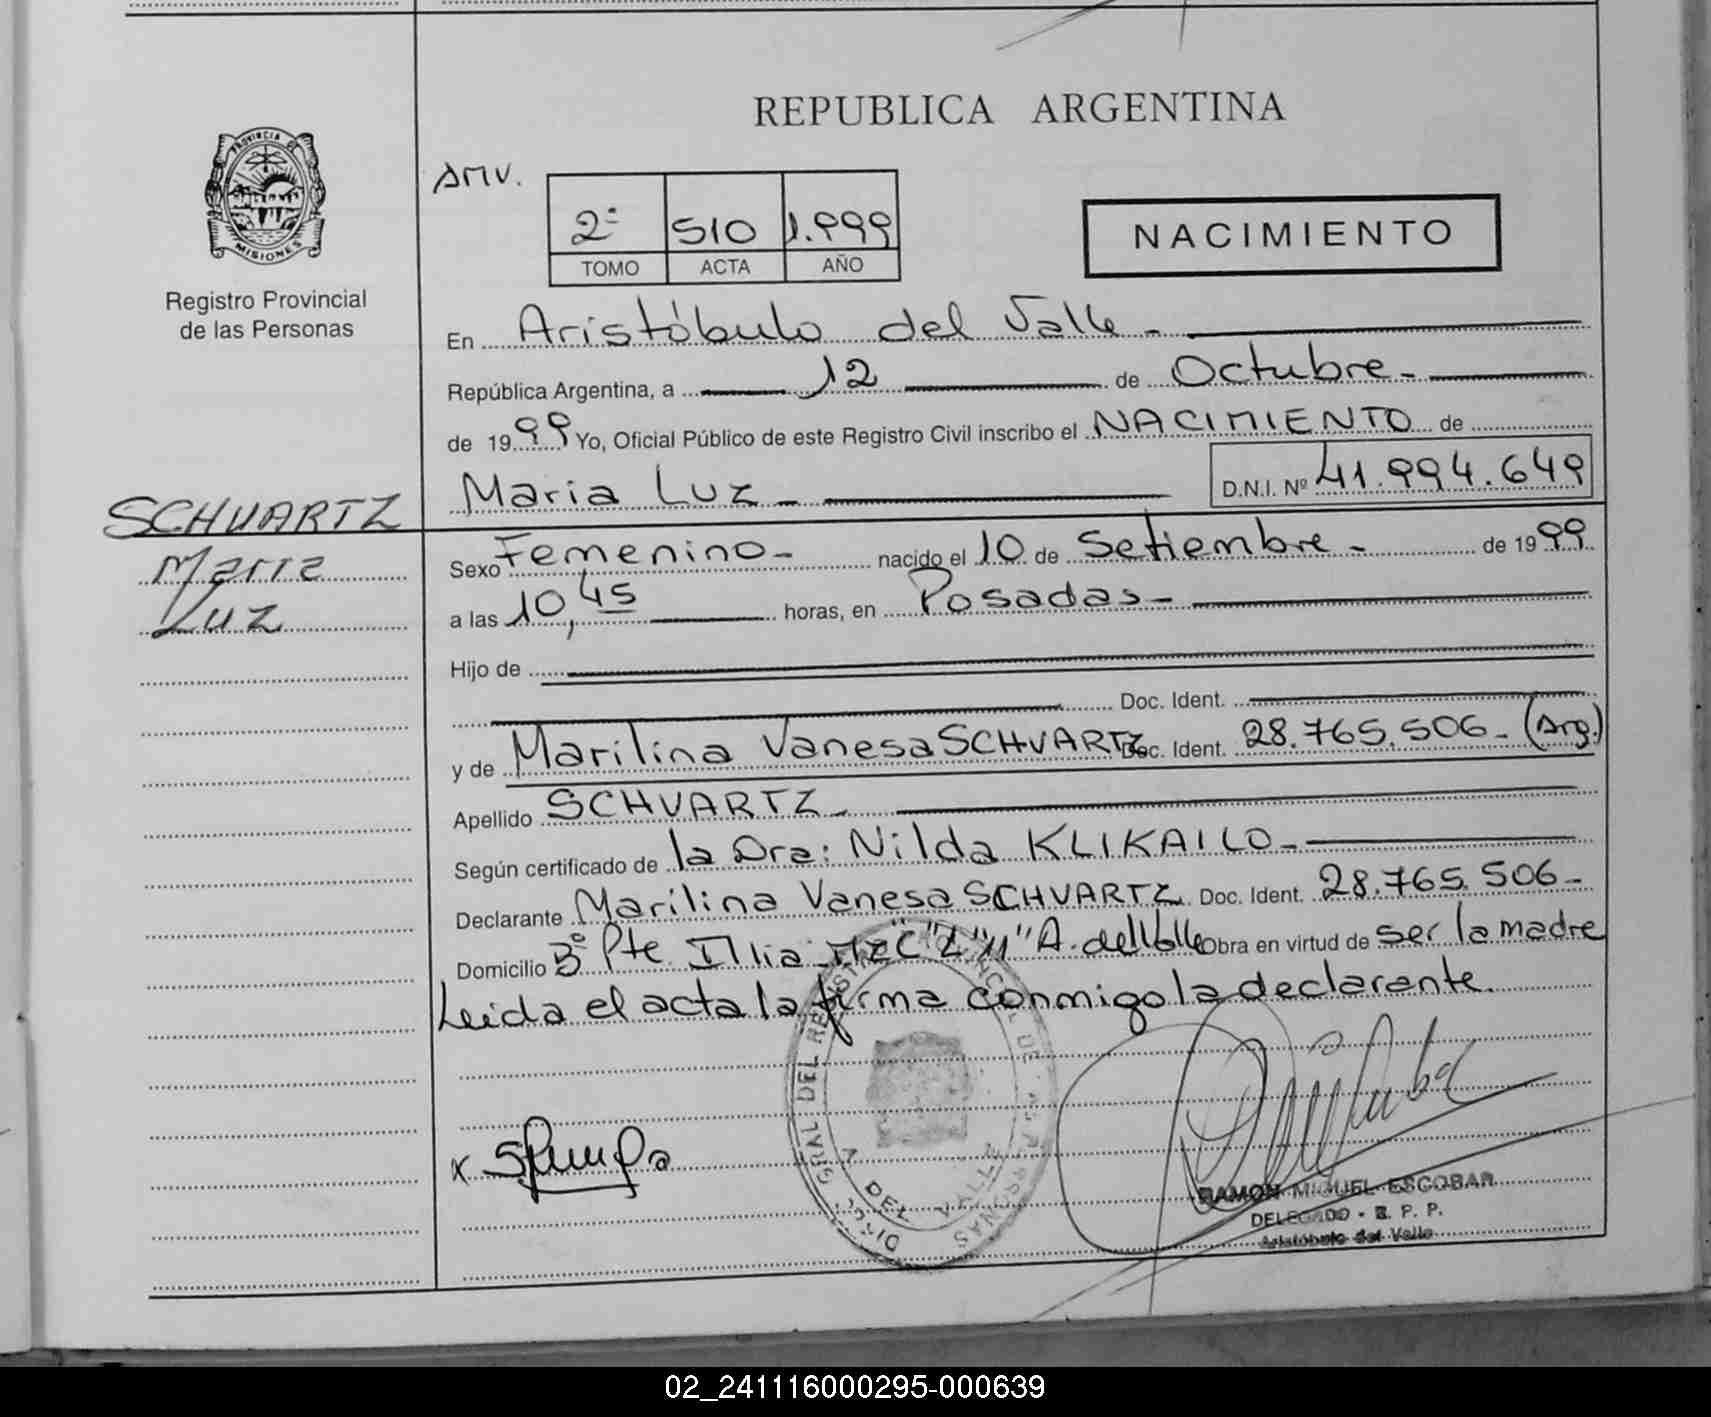 REPUBLICA ARGENTINA
PROVINCIA DE
MISIONES
Registro Provincial
de las Personas
AMV.
2º 510 1.999
TOMO ACTA AÑO
NACIMIENTO
En Aristóbulo del Valle -
República Argentina, a 12 de Octubre -
de 1999 Yo, Oficial Público de este Registro Civil inscribo el NACIMIENTO de
Maria Luz - D.N.I. Nº 41.994.649
SCHVARTZ
Maria
Luz
Sexo Femenino - nacido el 10 de Setiembre - de 1999
a las 10,45 horas, en Posadas -
Hijo de
Doc. Ident.
y de Marilina Vanesa SCHVARTZ Doc. Ident. 28.765.506 - (Arg.)
Apellido SCHVARTZ -
Según certificado de la Dra: Nilda KLIKAILO -
Declarante Marilina Vanesa SCHVARTZ Doc. Ident. 28.765.506 -
Domicilio Bº Pte Illia Mz "C" L "11" A. del Valle Obra en virtud de ser la madre
Leida el acta la firma conmigo la declarante.
x
DIRECC. GRAL DEL REGISTRO PROVINCIAL DE LAS PERSONAS
A. DEL VALLE
RAMON MIGUEL ESCOBAR
DELEGADO - R. P. P.
Aristóbulo del Valle
02_241116000295-000639